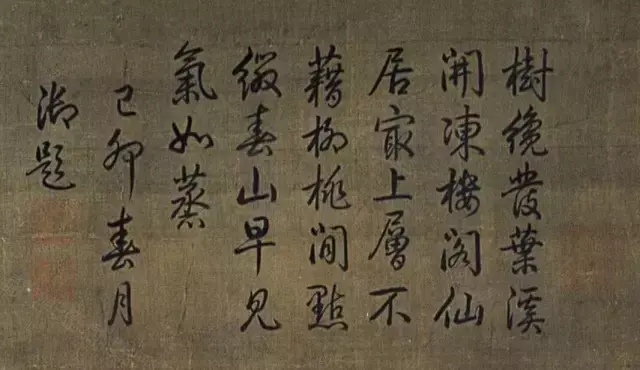 樹纔發葉溪
開凍樓閣仙
居最上層不
藉柳桃閒點
綴春山早見
氣如蒸
己卯春月
御題